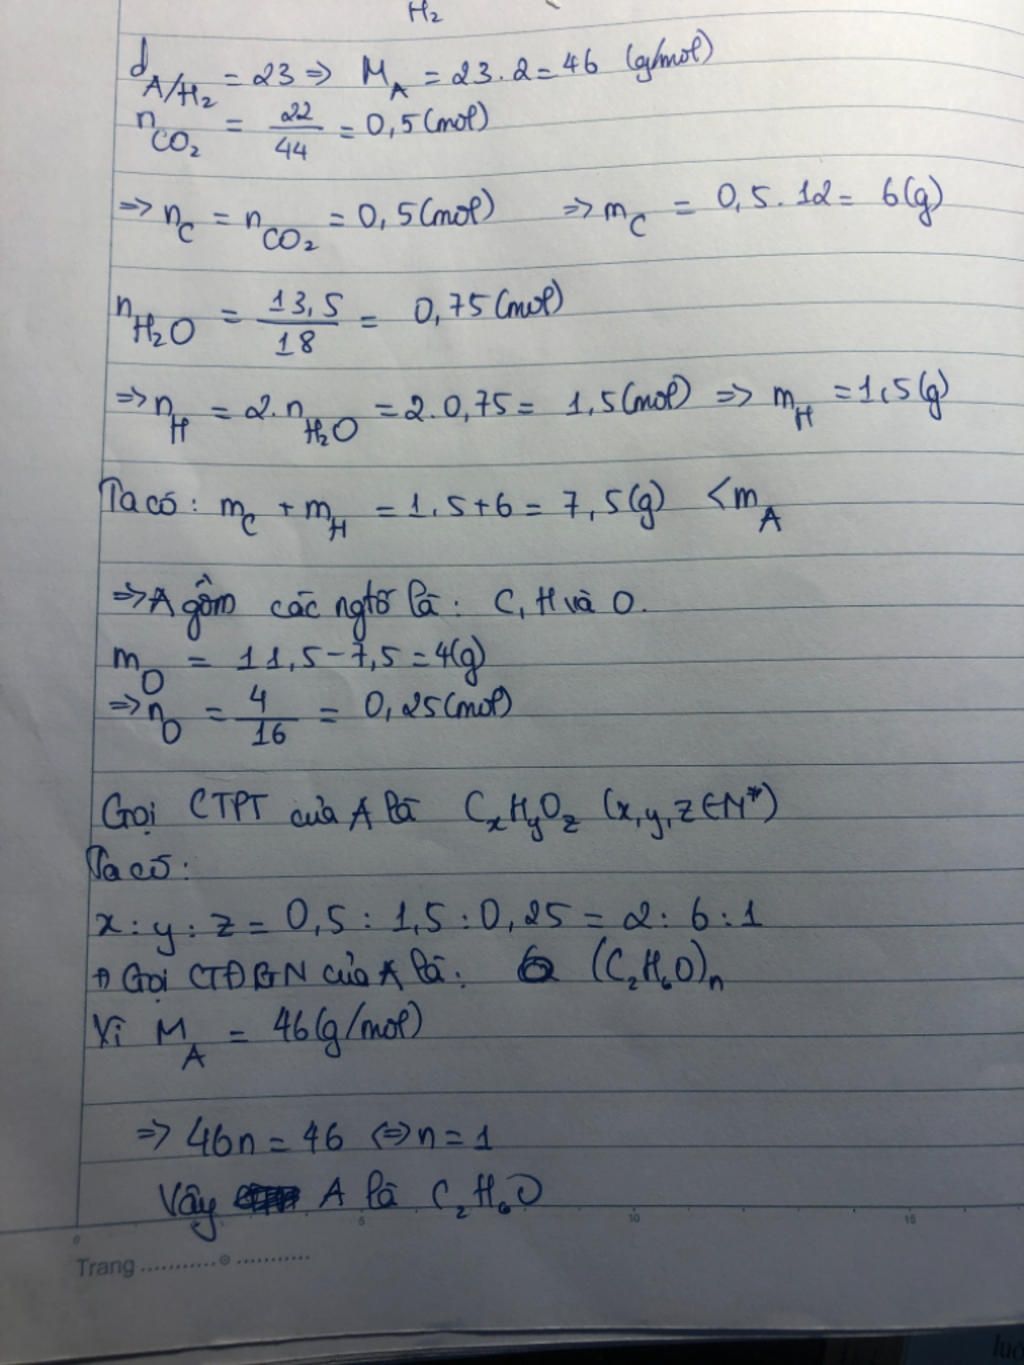 H₂
d_A/H₂ = 23 => M_A = 23.2 = 46 (g/mol)
n_CO₂ = 22/44 = 0,5(mol)
=> n_C = n_CO₂ = 0,5(mol) => m_C = 0,5.12 = 6(g)
n_H₂O = 13,5/18 = 0,75(mol)
=> n_H = 2.n_H₂O = 2.0,75 = 1,5(mol) => m_H = 1,5(g)
Ta có: m_C + m_H = 1,5+6 = 7,5(g) < m_A
=> A gồm các ngtố là: C, H và O.
m_O = 11,5-7,5 = 4(g)
=> n_O = 4/16 = 0,25(mol)
Gọi CTPT của A là CxHyOz (x,y,z ∈ N*)
Ta có:
x : y : z = 0,5 : 1,5 : 0,25 = 2 : 6 : 1
=> Gọi CTĐGN của A là: (C₂H₆O)n
Vì M_A = 46(g/mol)
=> 46n = 46 <=> n = 1
Vậy A là C₂H₆O
0 5 10 15
Trang